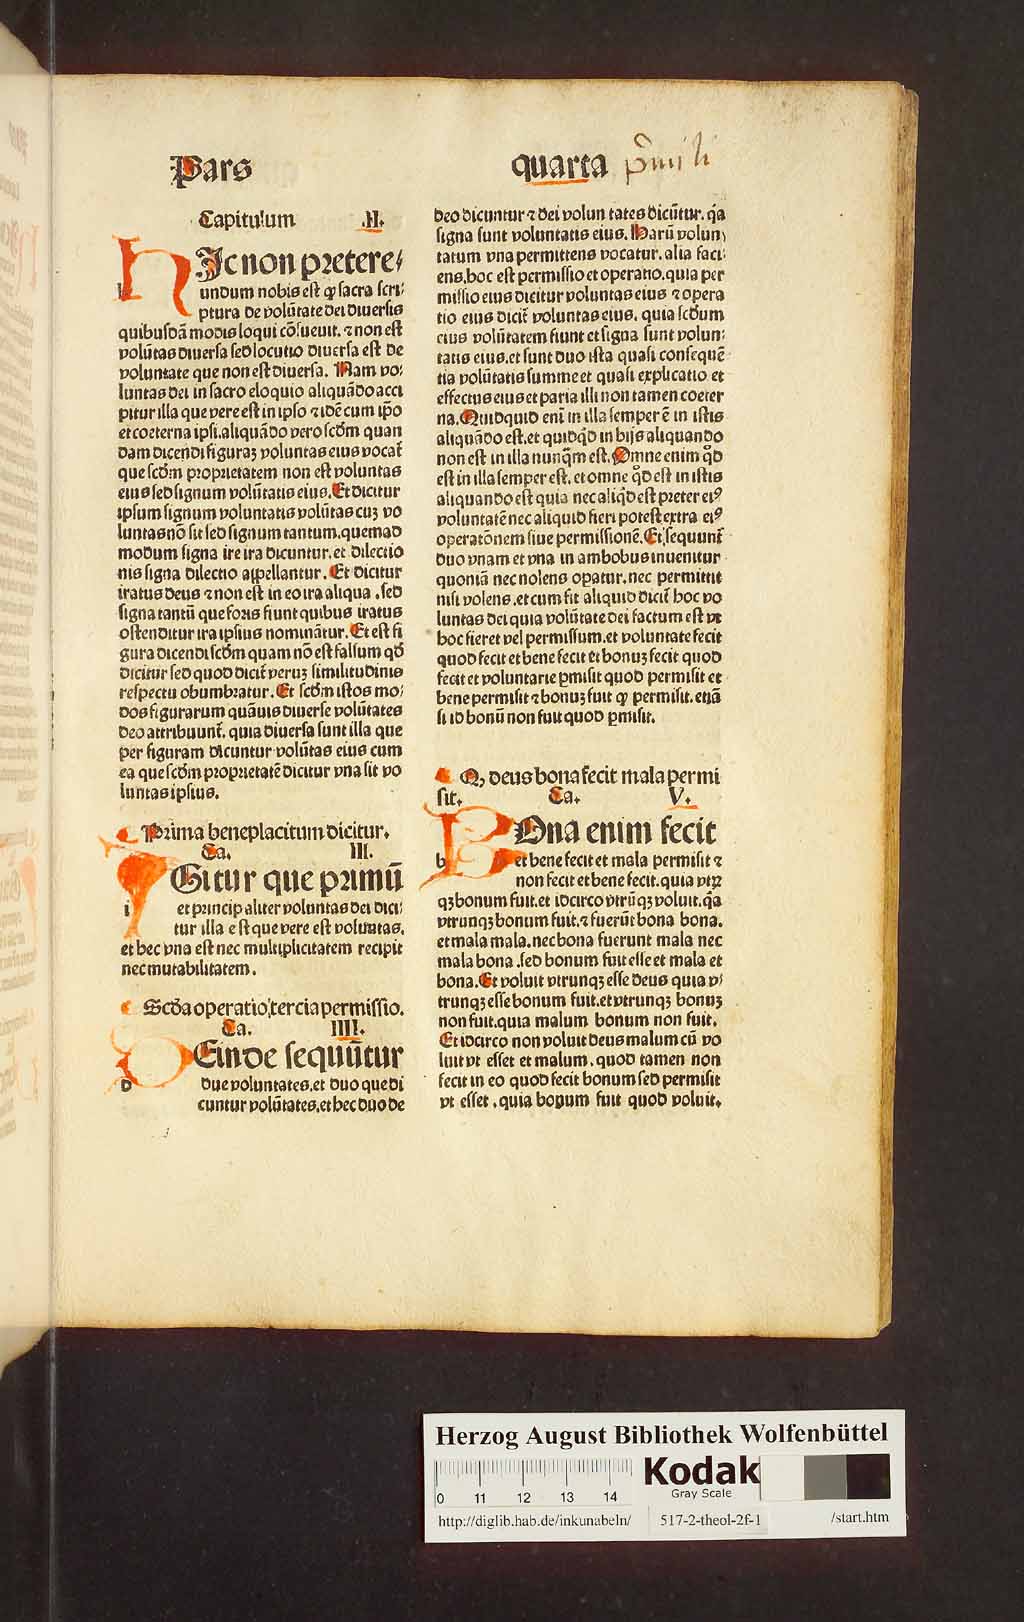 Pars quarta
Capitulum .II.
HIc non pretere/
h undum nobis est ꝙ sacra scri:
ptura de volūtate dei diuersis
quibusdā modis loqui cōsueuit. ⁊ non est
volūtas diuersa sed locutio diuersa est de
voluntate que non est diuersa. Nam vo:
luntas dei in sacro eloquio aliquādo acci
pitur illa que vere est in ipso ⁊ idē cum ip̄o
et coeterna ipsi. aliquādo vero scḋm quan
dam dicendi figuraꝫ voluntas eius vocat᷑
que scḋm proprietatem non est voluntas
eius sed signum volūtatis eius. Et dicitur
ipsum signum voluntatis volūtas cuꝫ vo
luntas nō sit sed signum tantum. quemad
modum signa ire ira dicuntur. et dilectio
nis signa dilectio appellantur. Et dicitur
iratus deus ⁊ non est in eo ira aliqua . sed
signa tantū que foris fiunt quibus iratus
ostenditur ira ipsius nominātur. Et est fi
gura dicendi scḋm quam nō est falsum qḋ
dicitur sed quod dicit᷑ veruꝫ similitudinis
respectu obumbratur. Et scḋm istos mo:
dos figurarum quāuis diuerse volūtates
deo attribuunt᷑. quia diuersa sunt illa que
per figuram dicuntur volūtas eius cum
ea que scḋm proprietatē dicitur vna sit vo
luntas ipsius.
Prima beneplacitum dicitur.
Ca. III.
IGitur que primū
i et principaliter voluntas dei dici:
tur illa est que vere est voluntas.
et hec vna est nec multiplicitatem recipit
nec mutabilitatem.
Scḋa operatio, tercia permissio.
Ca. IIII.
DEinde sequūtur
d due voluntates. et duo que di
cuntur volūtates. et hec duo de
deo dicuntur ⁊ dei volun tates dicūtur. q̄a
signa sunt voluntatis eius. Harū volun
tatum vna permittens vocatur. alia faci:
ens. hoc est permissio et operatio. quia per
missio eius dicitur voluntas eius ⁊ opera
tio eius dicit᷑ voluntas eius. quia scḋum
eius volūtatem fiunt et signa sunt volun:
tatis eius. et sunt duo ista quasi consequē
tia volūtatis summe et quasi explicatio et
effectus eius et paria illi non tamen coeter
na. Quidquid eni᷑ in illa semper ē in istis
aliquādo est. et quidqḋ in hijs aliquando
non est in illa nunq̄m est. Omne enim qḋ
est in illa semper est. et omne qḋ est in istis
aliquando est quia nec aliqḋ est preter eiꝰ
voluntatē nec aliquid fieri potest extra eiꝰ
operatōnem siue permissionē. Et sequunt᷑
duo vnam et vna in ambobus inuenitur
quoniā nec nolens oꝑatur. nec permittit
nisi volens. et cum fit aliquid dicit᷑ hoc vo
luntas dei quia volūtate dei factum est vt
hoc fieret vel permissum. et voluntate fecit
quod fecit et bene fecit et bonuꝫ fecit quod
fecit et voluntarie ꝑmisit quod permisit et
bene permisit ⁊ bonuꝫ fuit ꝙ permisit. etiā
si id bonū non fuit quod ꝑmisit.
Q, deus bona fecit mala permi
sit. Ca. V.
BOna enim fecit
b et bene fecit et mala permisit ⁊
non fecit et bene fecit. quia vtrū
qꝫ bonum fuit. et idcirco vtrūqꝫ voluit. q̄a
vtrunqꝫ bonum fuit. ⁊ fuerūt bona bona.
et mala mala. nec bona fuerunt mala nec
mala bona. sed bonum fuit esse et mala et
bona. Et voluit vtrunqꝫ esse deus quia v/
trunqꝫ esse bonum fuit. et vtrunqꝫ bonuꝫ
non fuit. quia malum bonum non fuit.
Et idcirco non voluit deus malum cū vo
luit vt esset et malum. quod tamen non
fecit in eo quod fecit bonum sed permisit
vt esset . quia bonum fuit quod voluit.
Herzog August Bibliothek Wolfenbüttel
0 11 12 13 14
Kodak
Gray Scale
http://diglib.hab.de/inkunabeln/ 517-2-theol-2f-1 /start.htm